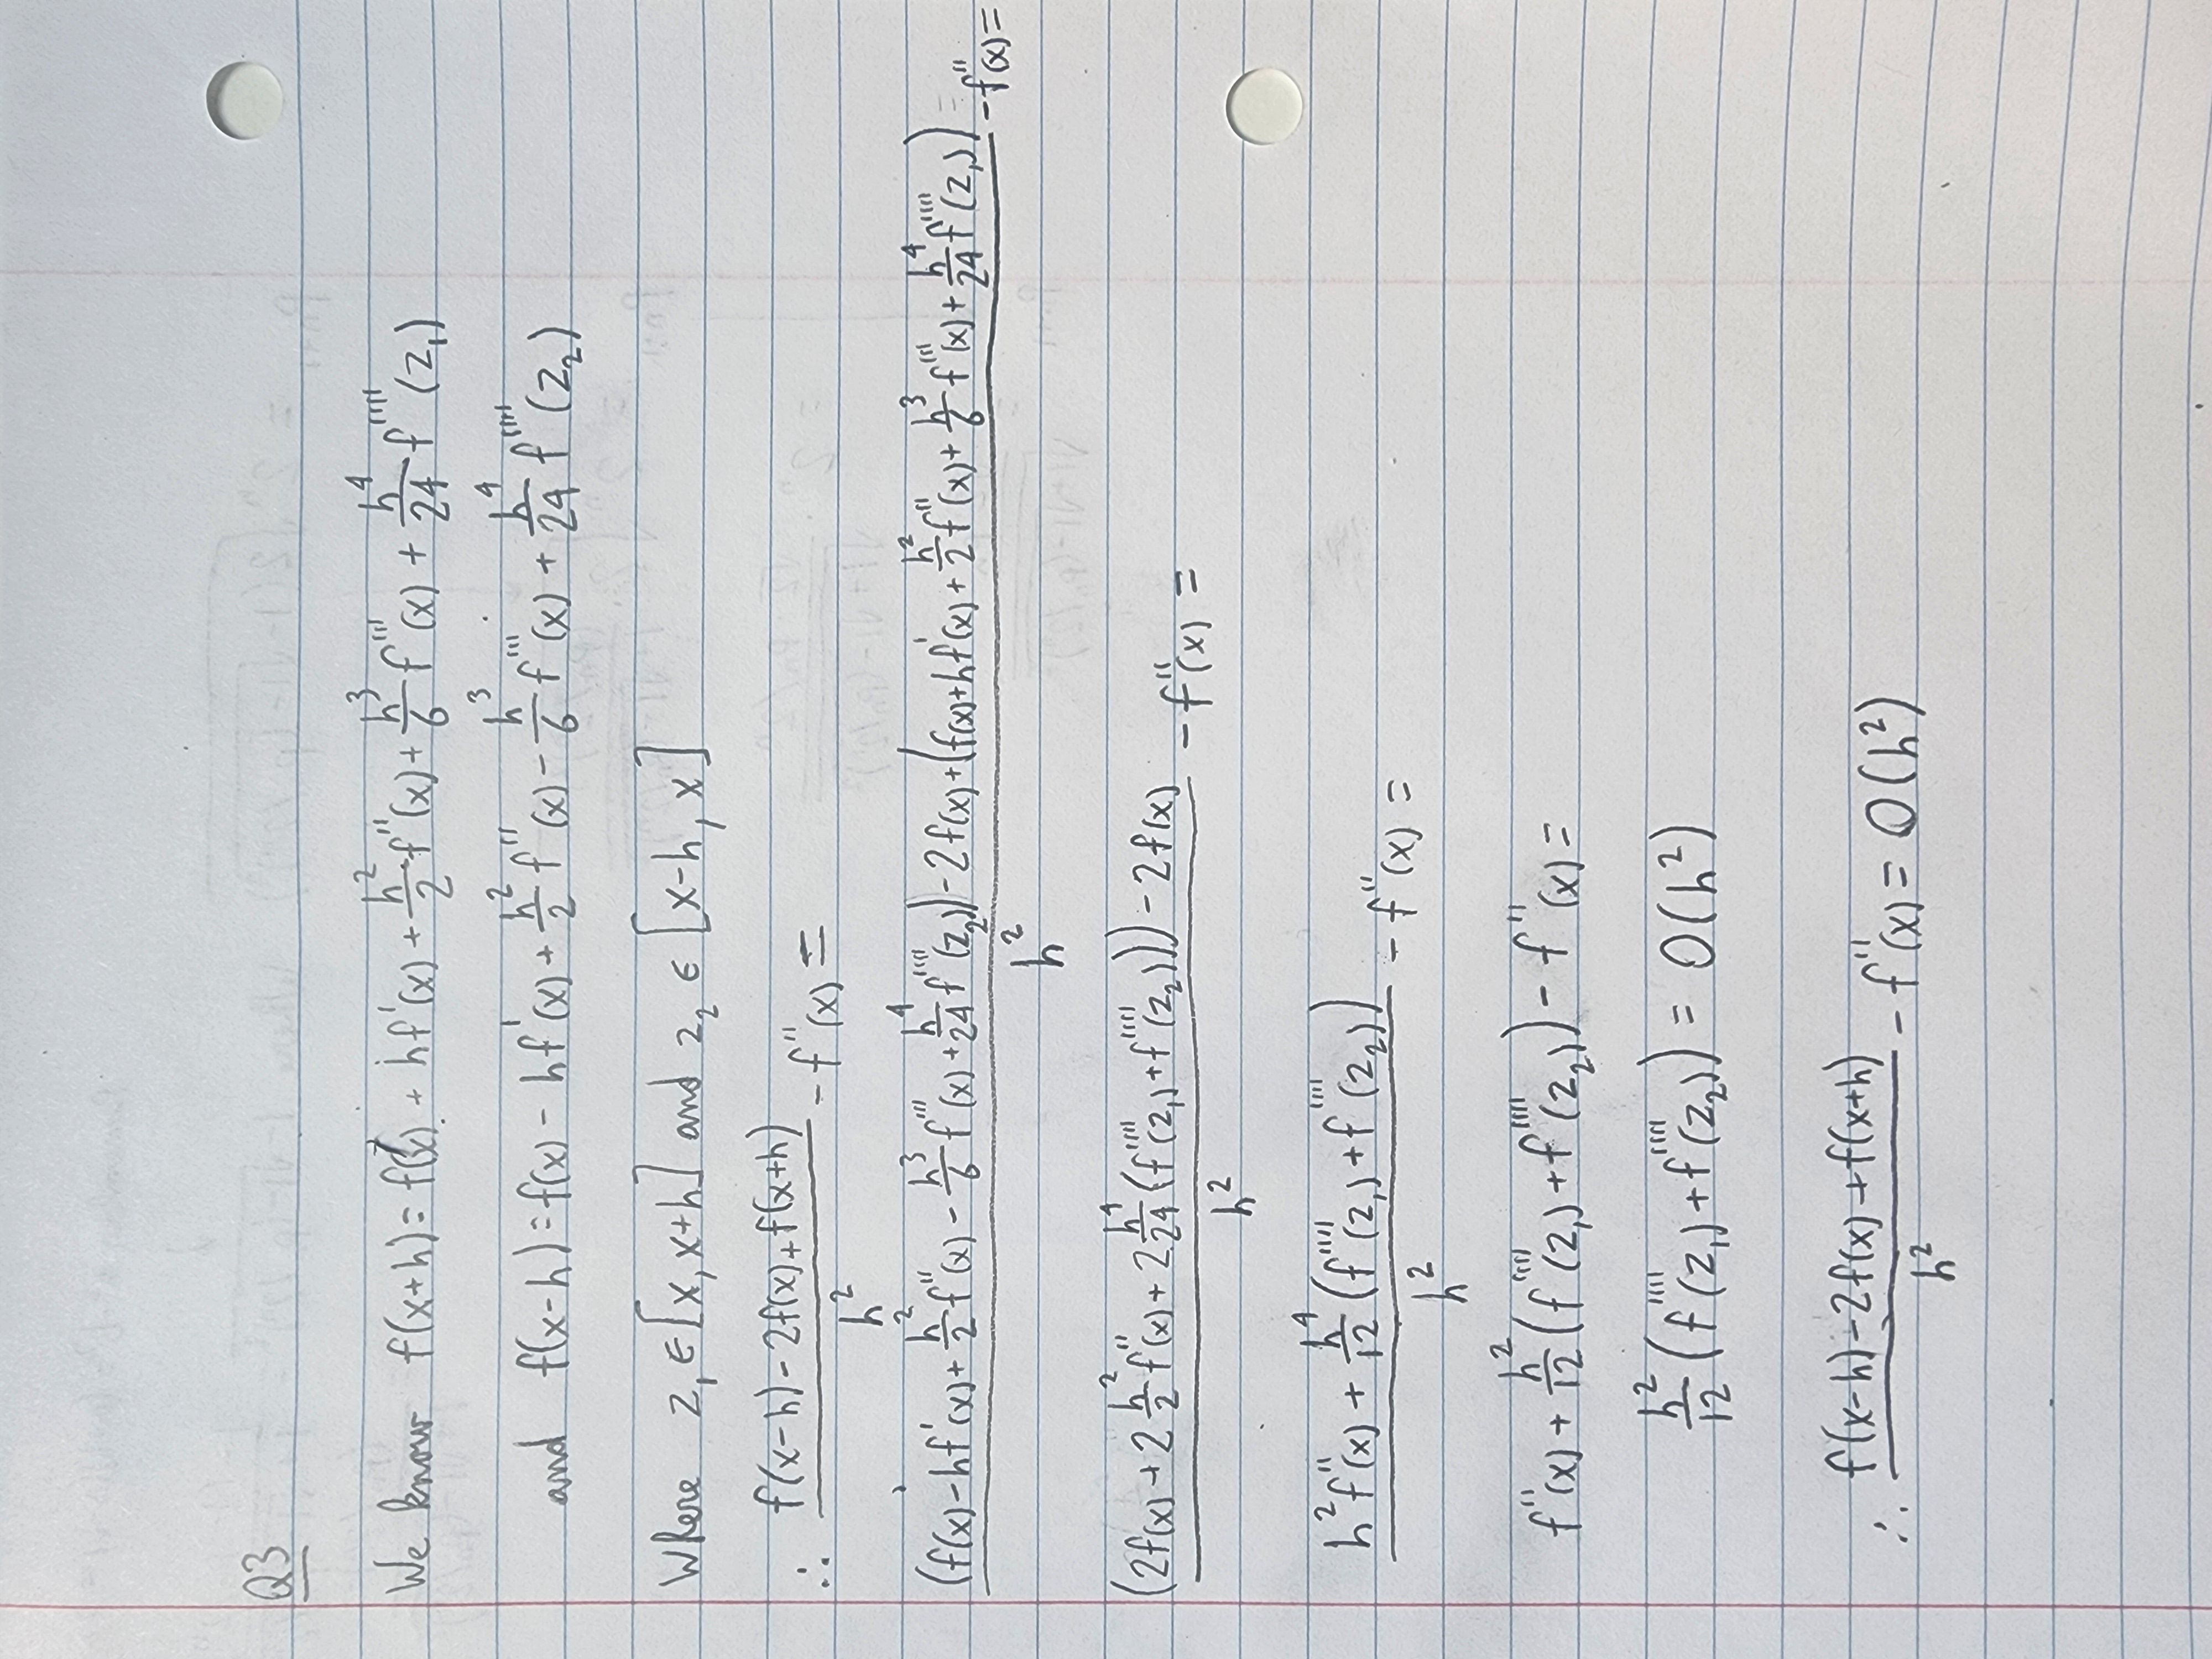 Q3
We know f(x+h) = f(x) + hf'(x) + h²/2 f''(x) + h³/6 f'''(x) + h⁴/24 f''''(z₁)
and f(x-h) = f(x) - hf'(x) + h²/2 f''(x) - h³/6 f'''(x) + h⁴/24 f''''(z₂)
Where z₁ ∈ [x, x+h] and z₂ ∈ [x-h, x]
∴ (f(x-h) - 2f(x) + f(x+h))/h² - f''(x) =
((f(x) - hf'(x) + h²/2 f''(x) - h³/6 f'''(x) + h⁴/24 f''''(z₂)) - 2f(x) + (f(x) + hf'(x) + h²/2 f''(x) + h³/6 f'''(x) + h⁴/24 f''''(z₁)))/h² - f''(x) =
((2f(x) + 2 h²/2 f''(x) + 2 h⁴/24 (f''''(z₁) + f''''(z₂))) - 2f(x))/h² - f''(x) =
(h² f''(x) + h⁴/12 (f''''(z₁) + f''''(z₂)))/h² - f''(x) =
f''(x) + h²/12 (f''''(z₁) + f''''(z₂)) - f''(x) =
h²/12 (f''''(z₁) + f''''(z₂)) = O(h²)
∴ (f(x-h) - 2f(x) + f(x+h))/h² - f''(x) = O(h²)